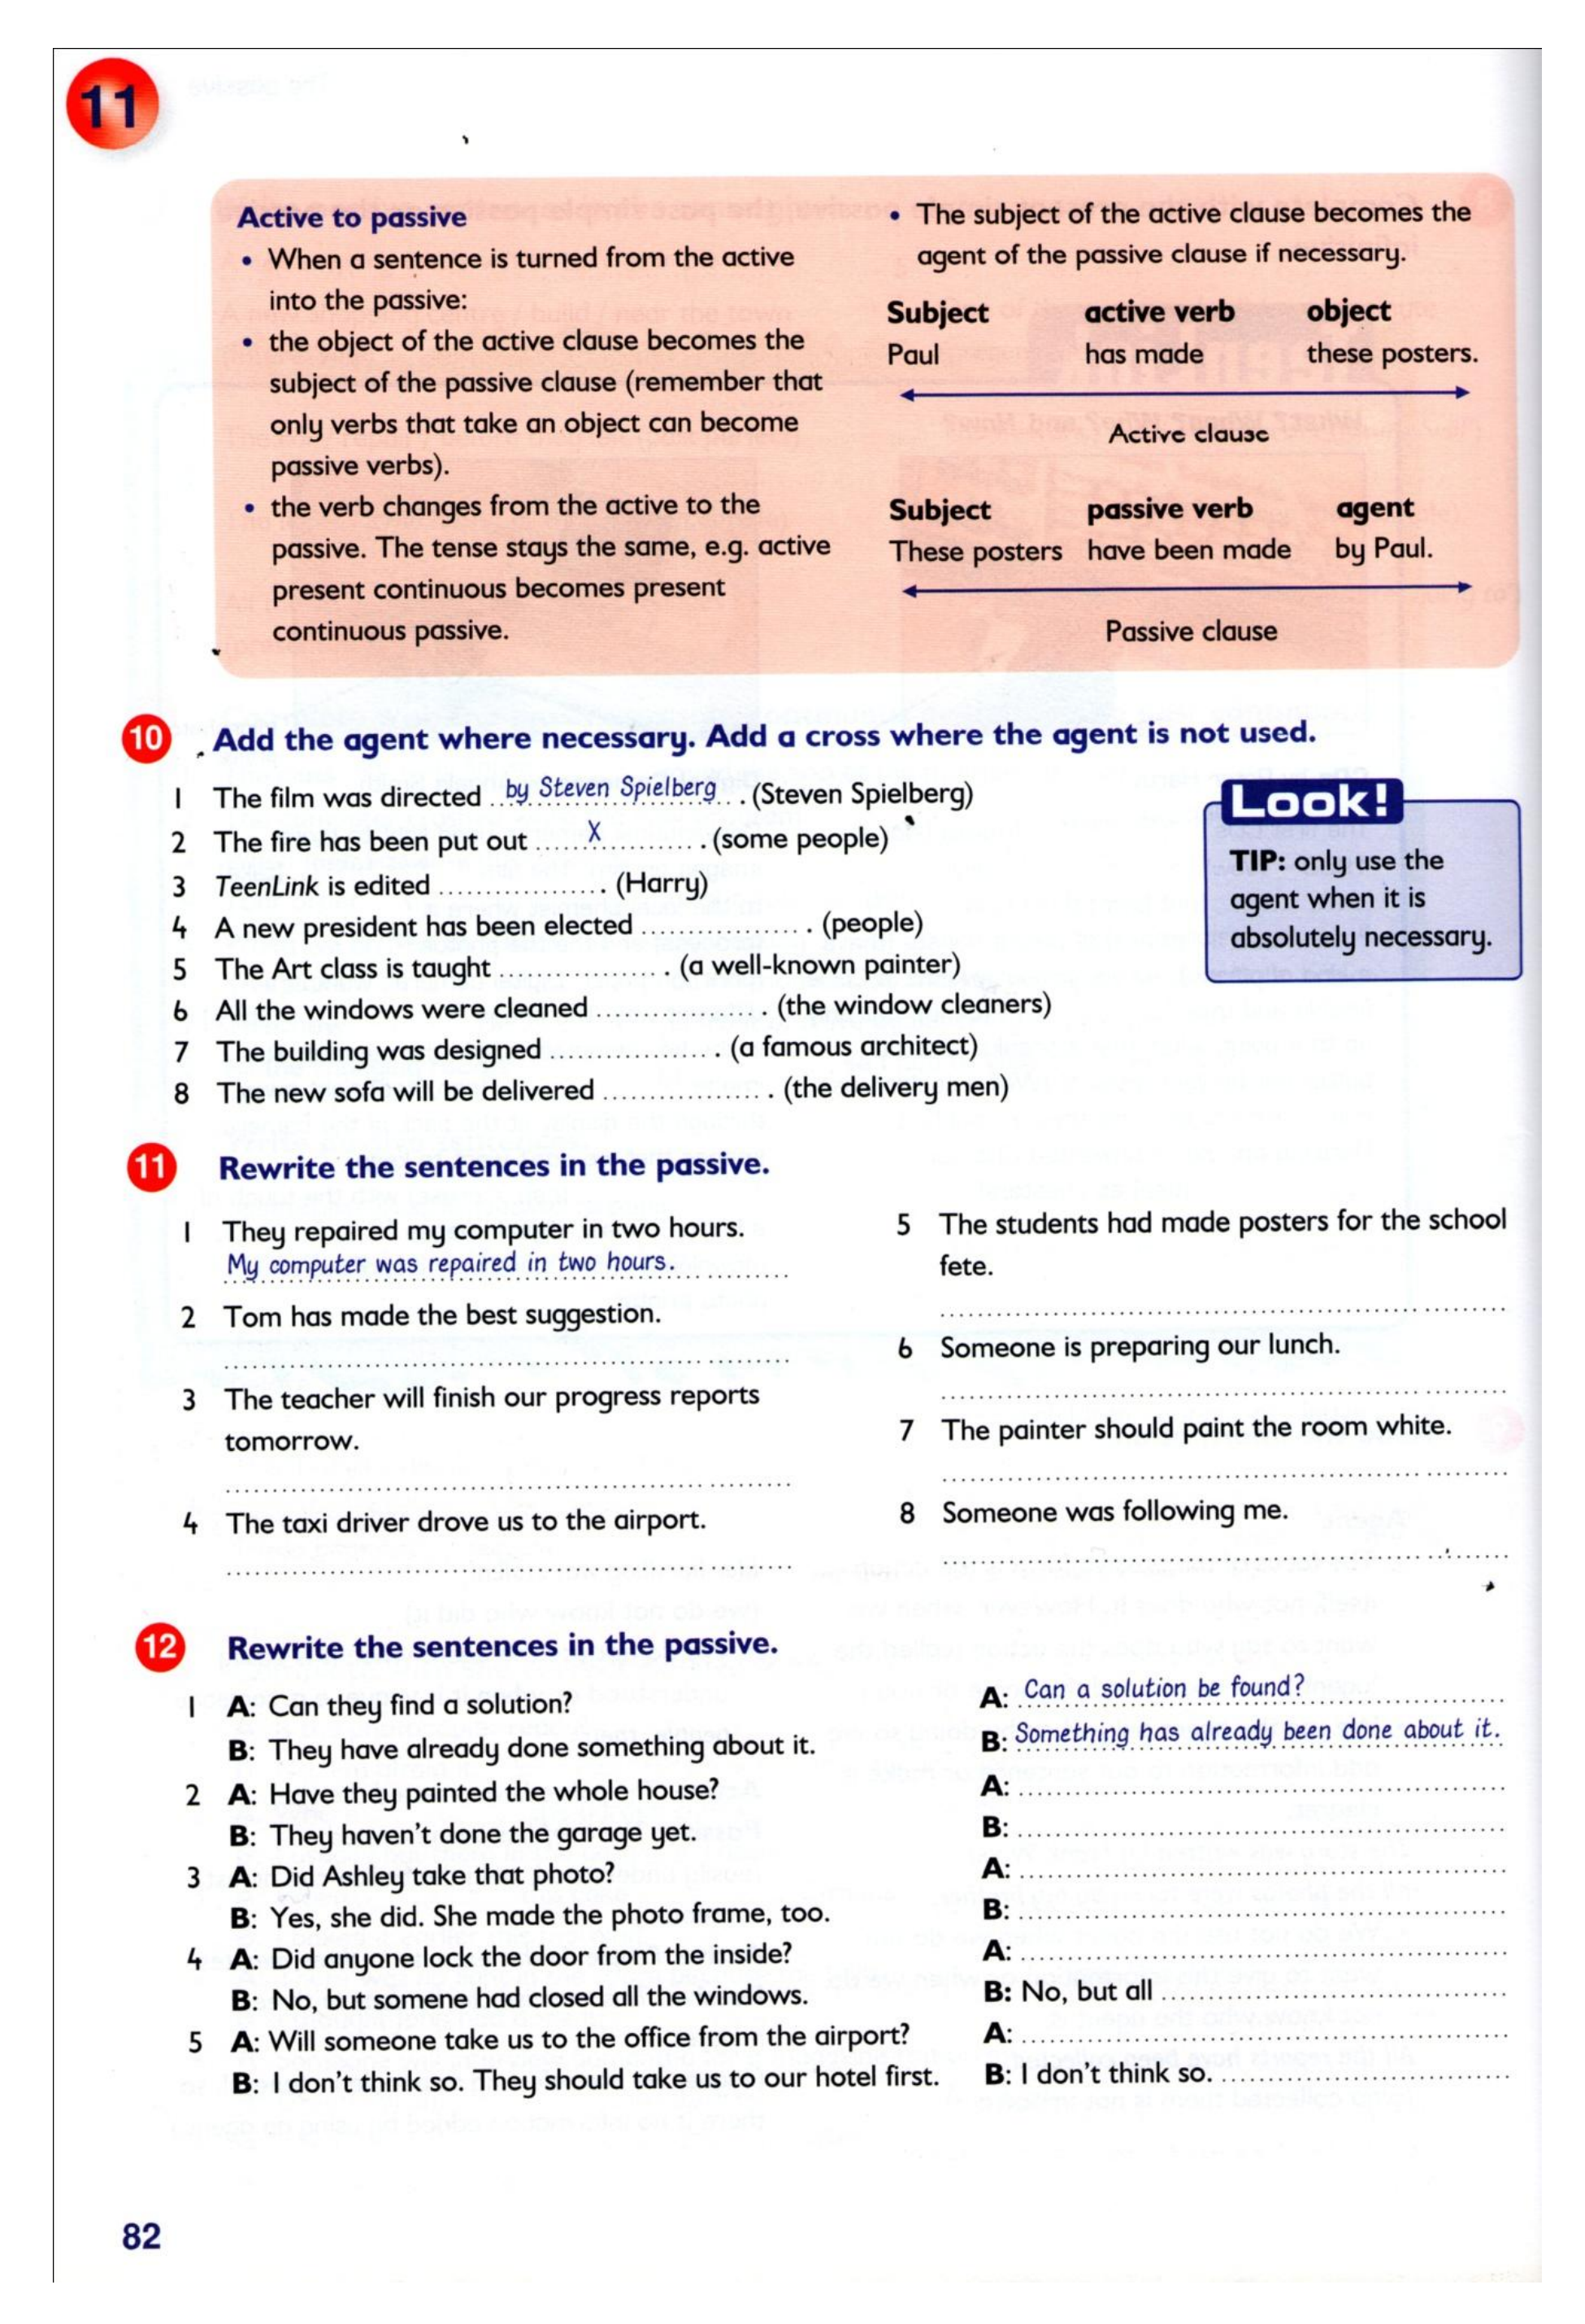 11
Active to passive
• When a sentence is turned from the active
into the passive:
• the object of the active clause becomes the
subject of the passive clause (remember that
only verbs that take an object can become
passive verbs).
• the verb changes from the active to the
passive. The tense stays the same, e.g. active
present continuous becomes present
continuous passive.
• The subject of the active clause becomes the
agent of the passive clause if necessary.
Subject active verb object
Paul has made these posters.
Active clause
Subject passive verb agent
These posters have been made by Paul.
Passive clause
10 Add the agent where necessary. Add a cross where the agent is not used.
1 The film was directed by Steven Spielberg. (Steven Spielberg)
2 The fire has been put out ......X.............. (some people)
3 TeenLink is edited ................. (Harry)
4 A new president has been elected ................. (people)
5 The Art class is taught ................. (a well-known painter)
6 All the windows were cleaned ................. (the window cleaners)
7 The building was designed ................. (a famous architect)
8 The new sofa will be delivered ................. (the delivery men)
Look!
TIP: only use the
agent when it is
absolutely necessary.
11 Rewrite the sentences in the passive.
1 They repaired my computer in two hours.
My computer was repaired in two hours.
2 Tom has made the best suggestion.
3 The teacher will finish our progress reports
tomorrow.
4 The taxi driver drove us to the airport.
5 The students had made posters for the school
fete.
6 Someone is preparing our lunch.
7 The painter should paint the room white.
8 Someone was following me.
12 Rewrite the sentences in the passive.
1 A: Can they find a solution? A: Can a solution be found?
B: They have already done something about it. B: Something has already been done about it.
2 A: Have they painted the whole house? A:
B: They haven't done the garage yet. B:
3 A: Did Ashley take that photo? A:
B: Yes, she did. She made the photo frame, too. B:
4 A: Did anyone lock the door from the inside? A:
B: No, but somene had closed all the windows. B: No, but all
5 A: Will someone take us to the office from the airport? A:
B: I don't think so. They should take us to our hotel first. B: I don't think so.
82